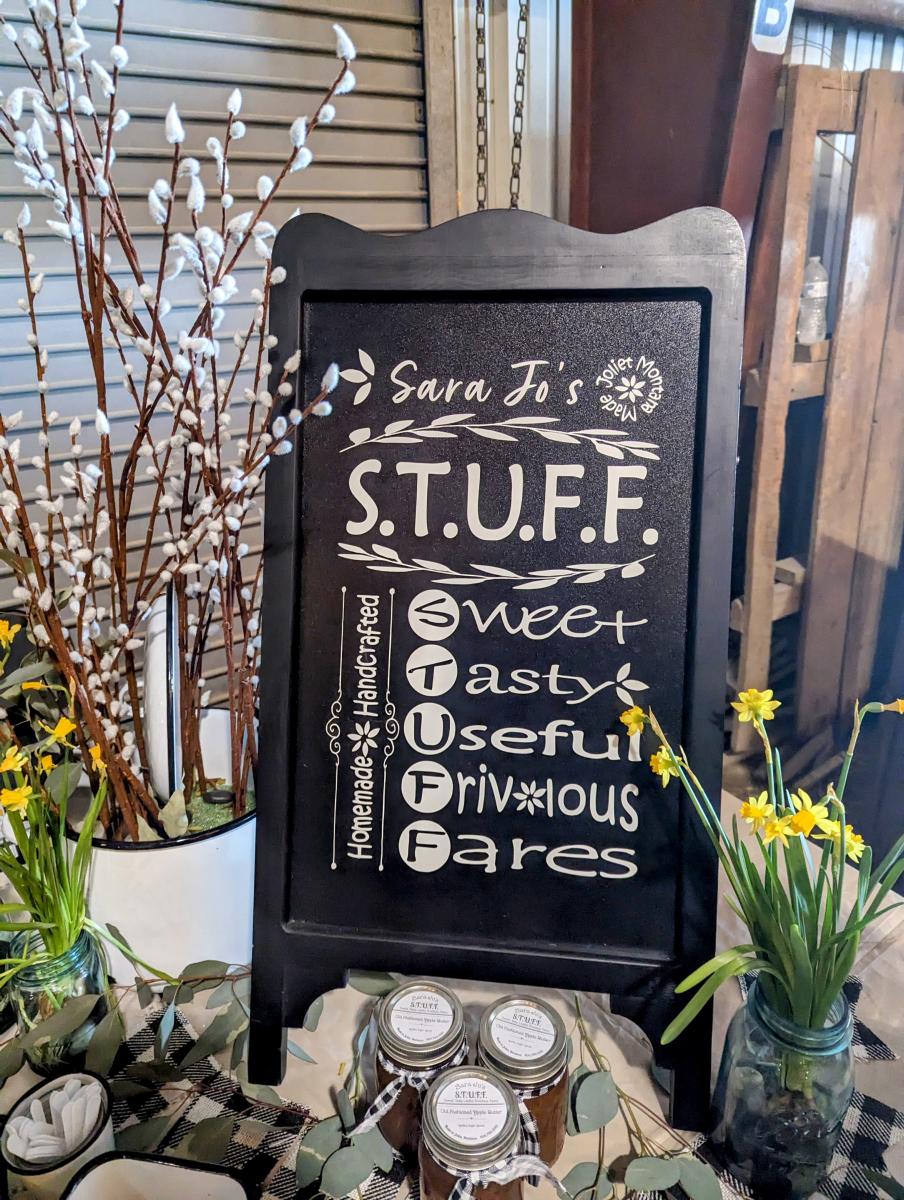 B
Sara Jo's
Joliet Montana Made
S.T.U.F.F.
Homemade HandCrafted
Sweet
Tasty
Useful
Frivolous
Fares
Sara Jo's
S.T.U.F.F.
Old Fashioned Apple Butter
Sara Jo's
S.T.U.F.F.
Old Fashioned Apple Butter
Sara Jo's
S.T.U.F.F.
Old Fashioned Apple Butter